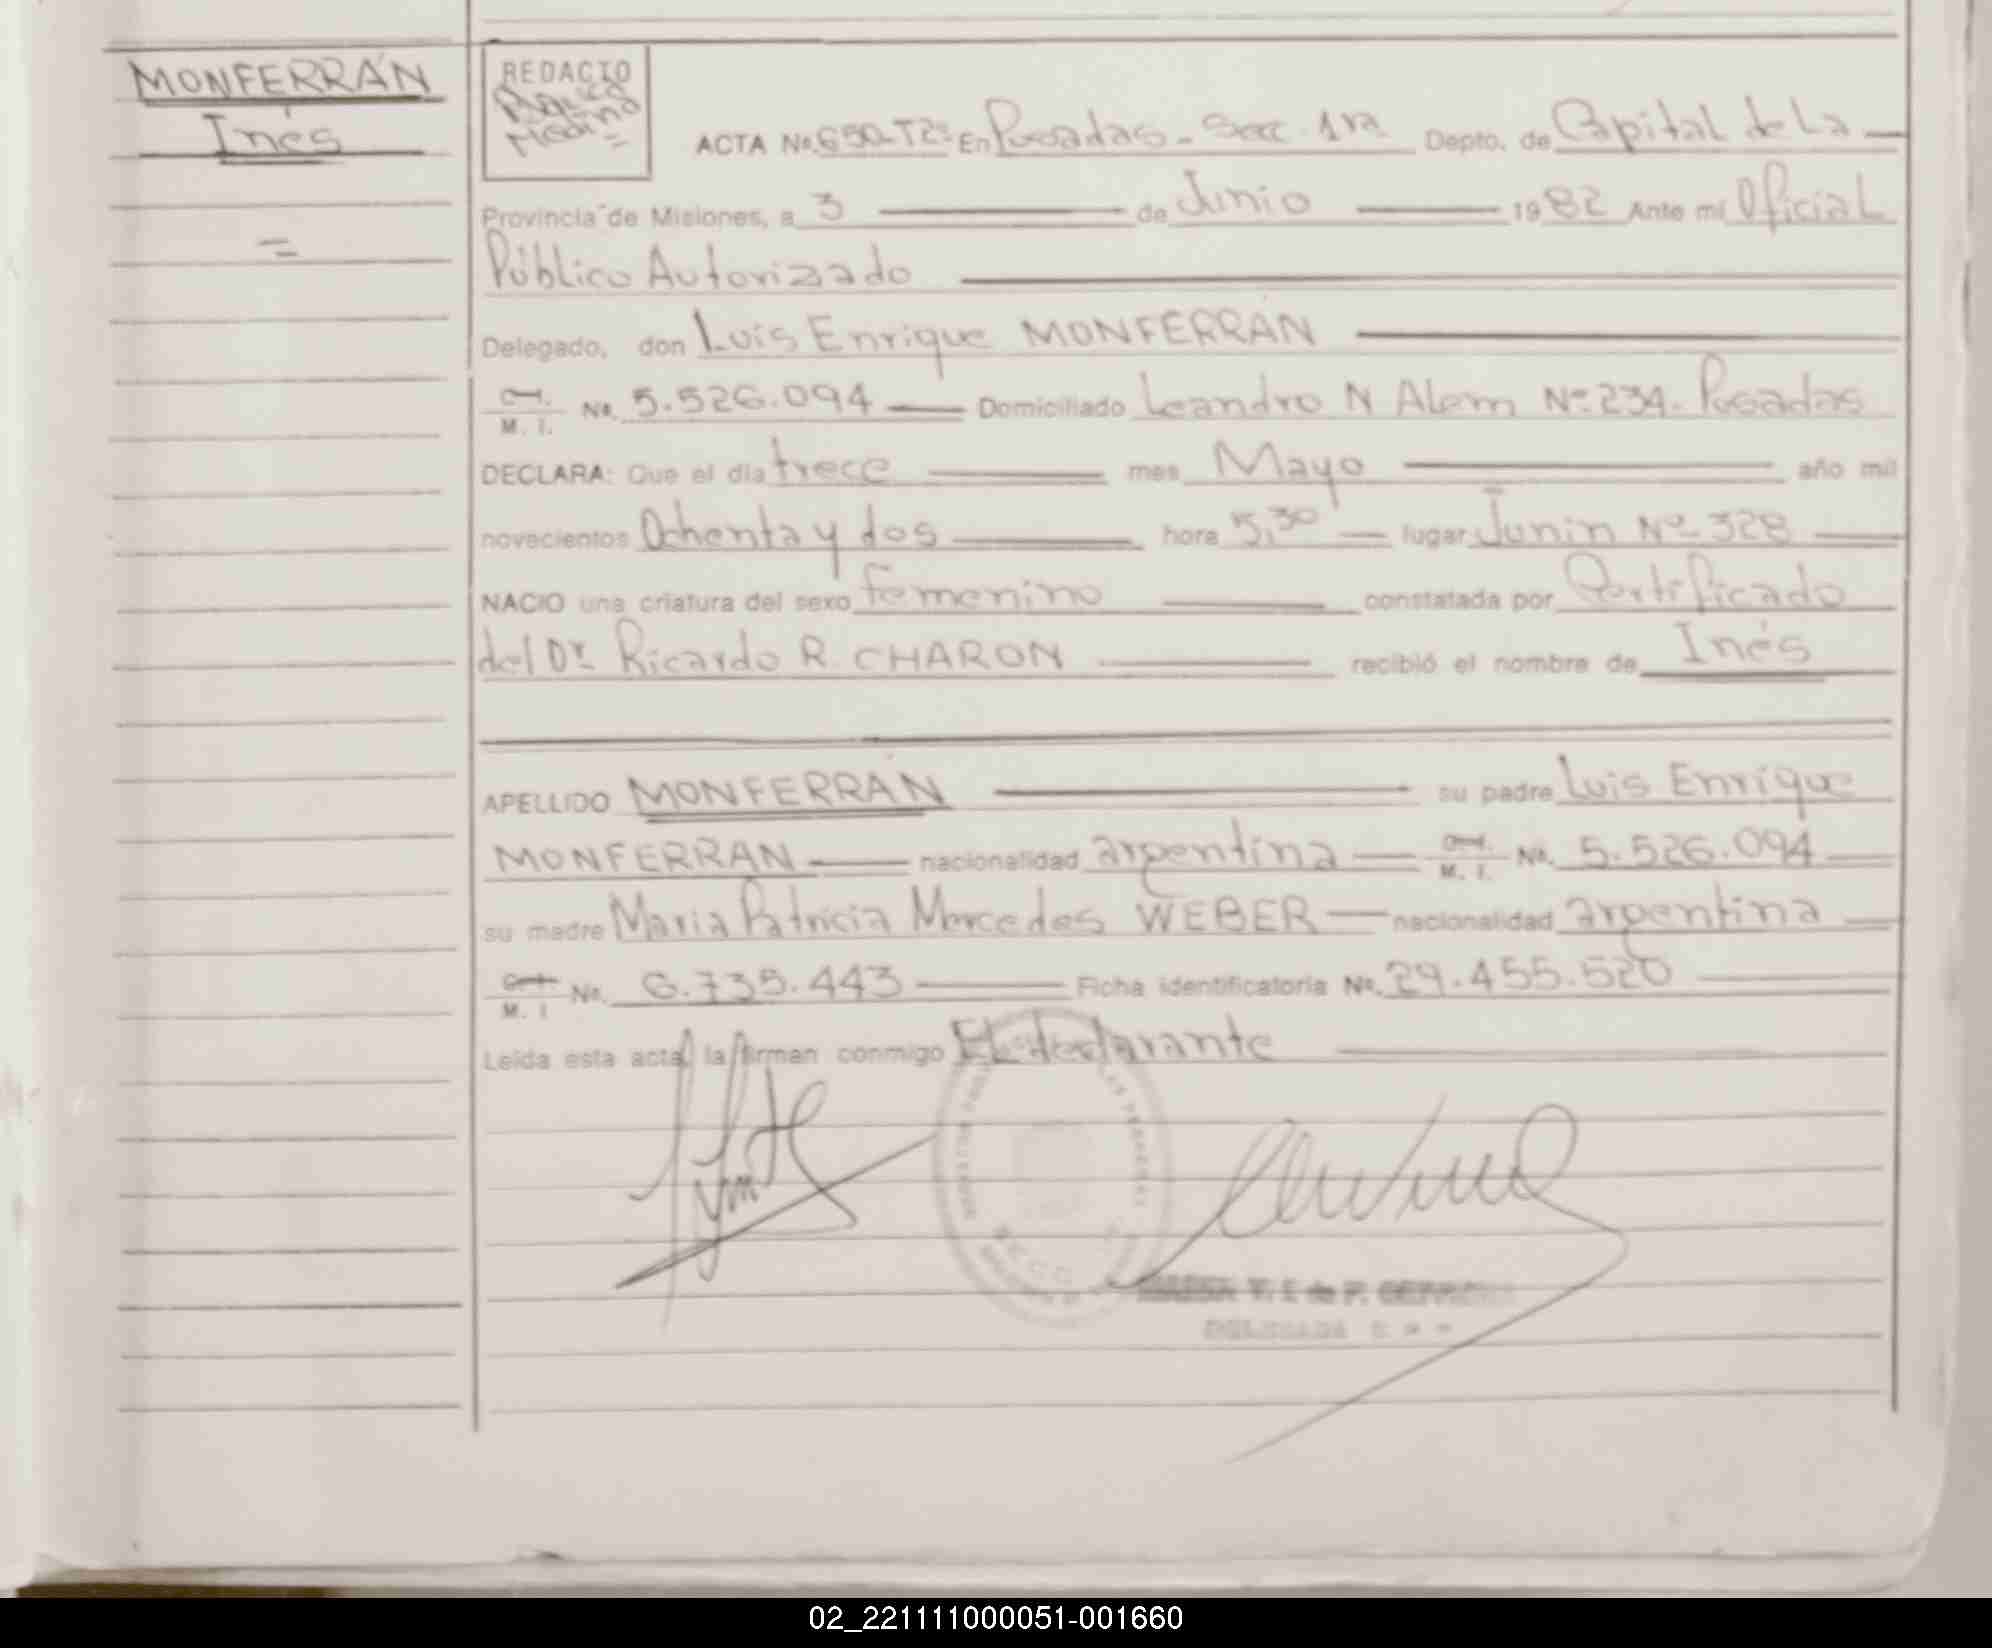 MONFERRÁN
Inés
=
REDACTO
Medina
=
ACTA No. 650-T2º En Posadas - Secc. 1ra Depto. de Capital de La
Provincia de Misiones, a 3 de Junio 1982 Ante mí Oficial
Público Autorizado
Delegado, don Luis Enrique MONFERRÁN
C.I. M. I. No. 5.526.094 Domiciliado Leandro N Alem Nº 234. Posadas
DECLARA: Que el día trece mes Mayo año mil
novecientos Ochenta y dos hora 5,30 lugar Junín Nº 328
NACIO una criatura del sexo femenino constatada por Certificado
del Dr. Ricardo R. CHARON recibió el nombre de Inés
APELLIDO MONFERRÁN su padre Luis Enrique
MONFERRAN nacionalidad argentina C.I. M. I. No. 5.526.094
su madre Maria Patricia Mercedes WEBER nacionalidad argentina
C.I. M. I No. 6.735.443 Ficha identificatoria No. 29.455.520
Leída esta acta, la firman conmigo El declarante
02_221111000051-001660